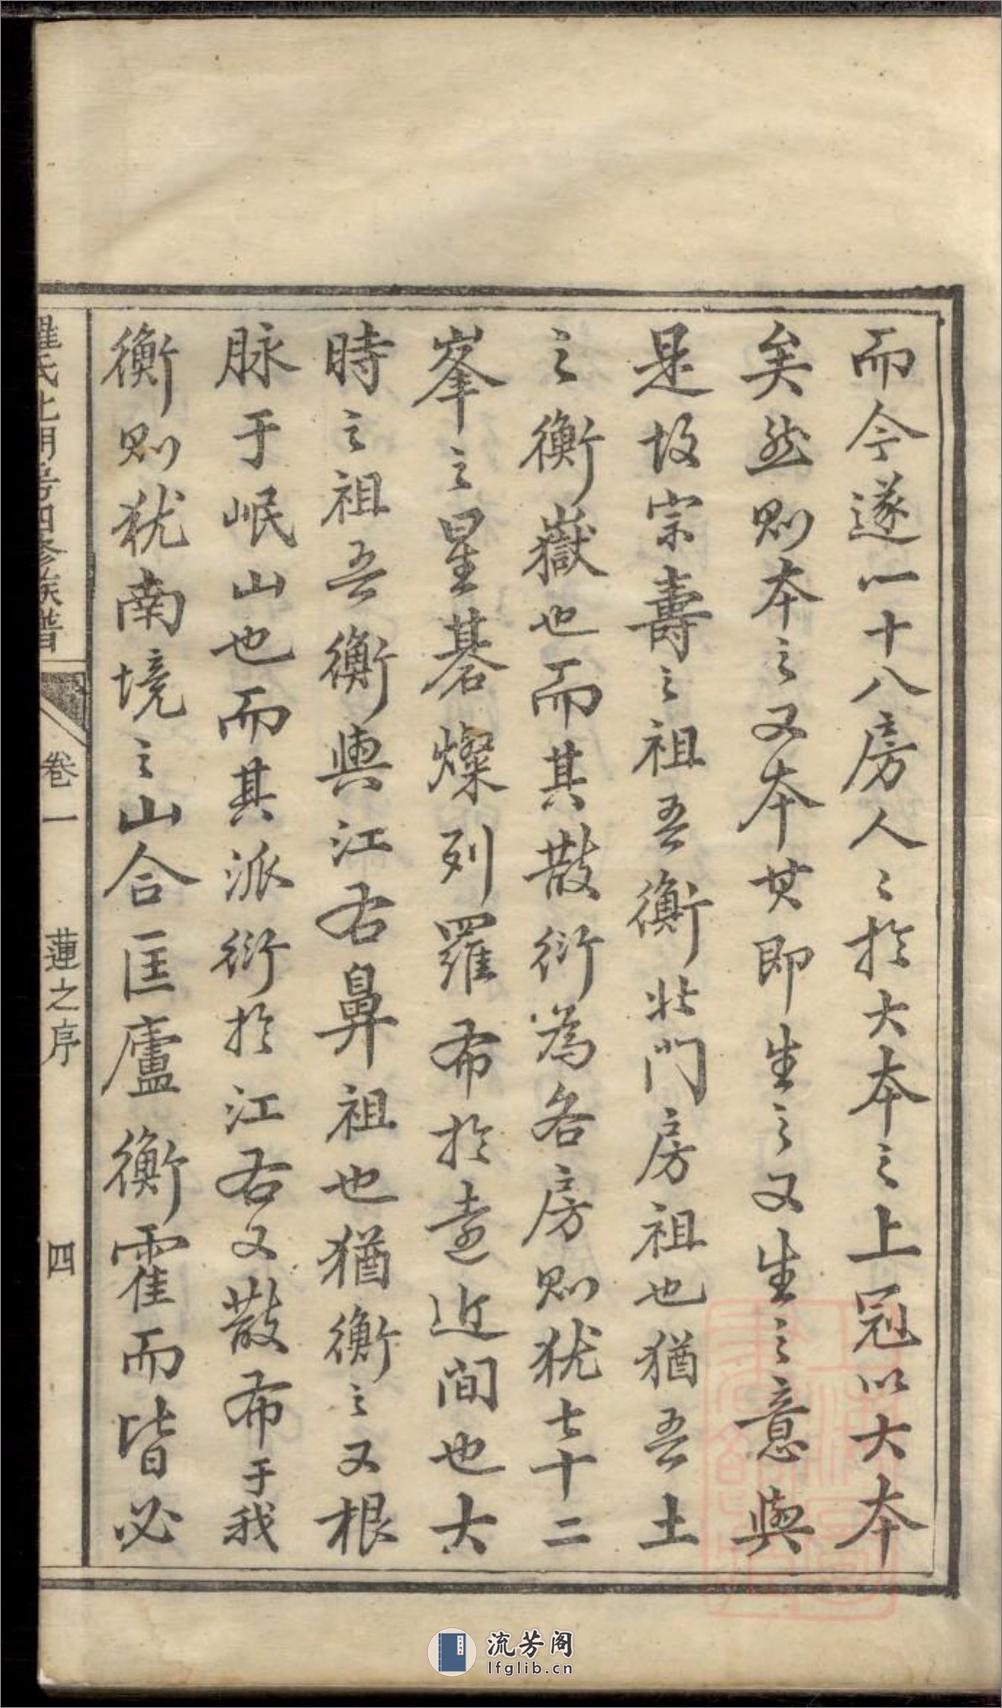 而今遂以十八房人〻於大本之上冠以大本
矣然則本之又本其即生之又生之意與
是故宗壽之祖吾衡北門房祖也猶吾土
之衡嶽也而其散衍為各房則猶七十二
峯之星碁燦列羅布於遠近間也大
時之祖吾衡與江右鼻祖也猶衡之又根
脉于岷山也而其派衍於江右又散布于我
衡則猶南境之山合匡廬衡霍而皆必
羅氏北門房四修族譜
卷一
蓮之序
四
流芳阁
lfglib.cn